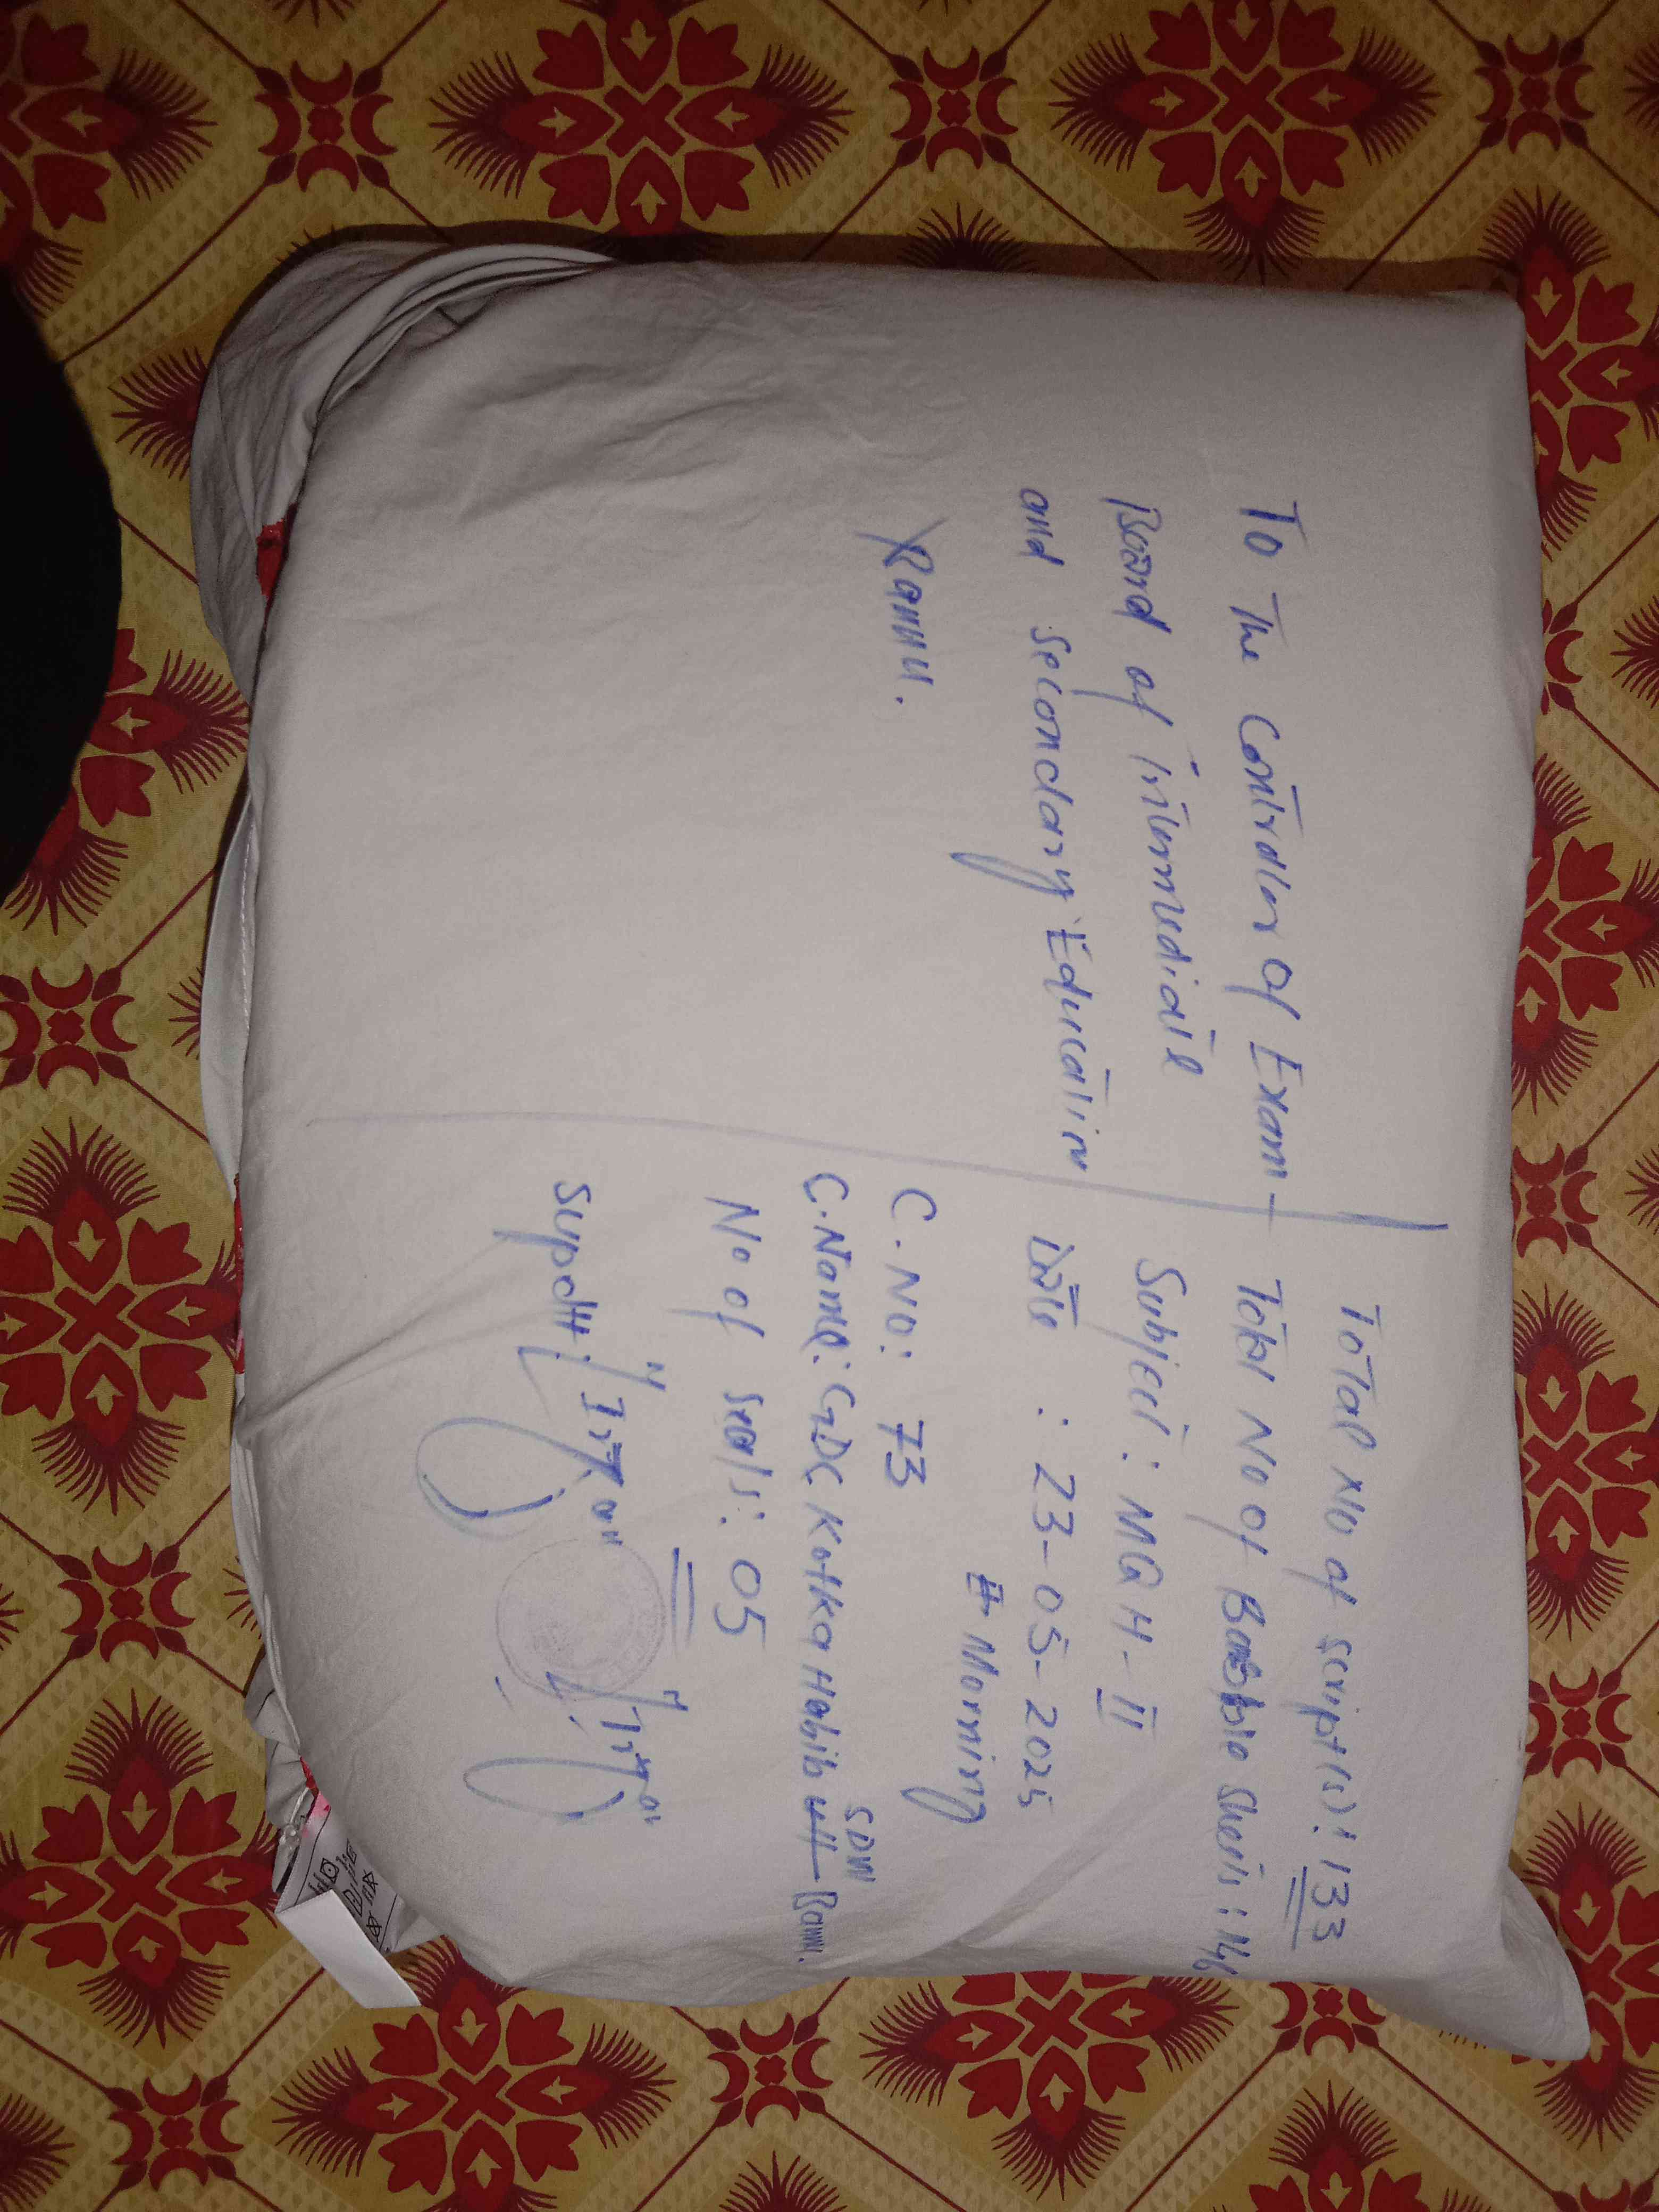 To The Controller of Exam-
Board of intermediate
and Secondary Education
Bannu.
Total No of script(s): 133
Total No of Sheets:
Subject: MQH-II
Date : 23-05-2025
Morning
C.No: 73
SDW
C.Name: GDC Kotka Habib ull Bannu.
No of seals: 05
Supdtt: